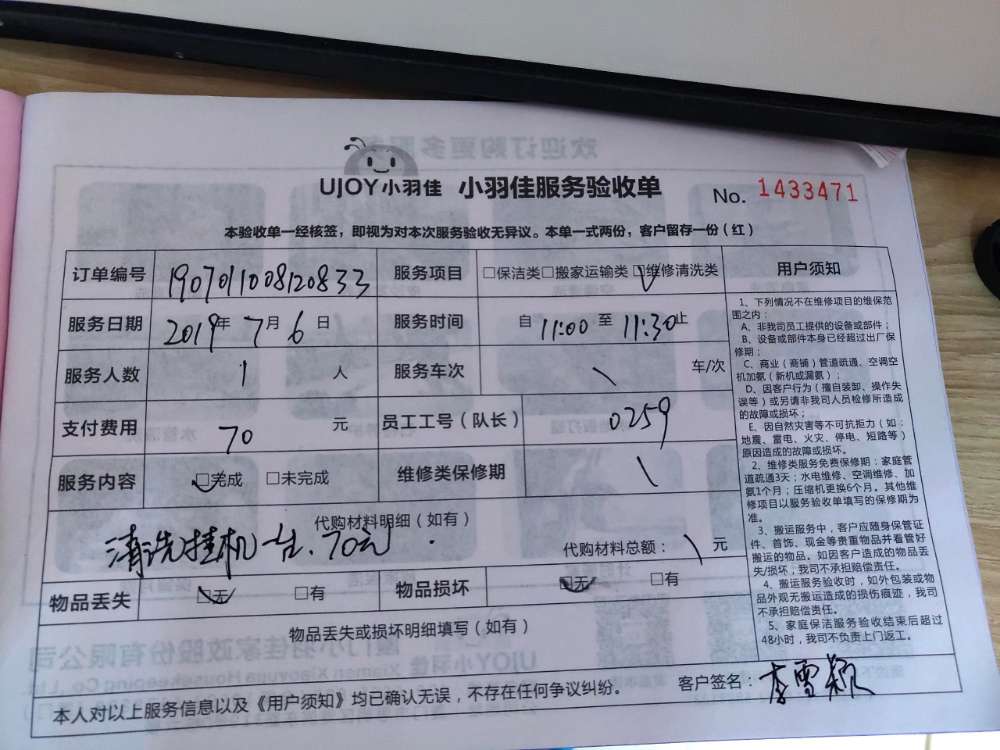 UJOY小羽佳 小羽佳服务验收单 No. 1433471
本验收单一经核签，即视为对本次服务验收无异议。本单一式两份，客户留存一份（红）
订单编号 1907011008120833 服务项目 □保洁类□搬家运输类☑维修清洗类
服务日期 2019年 7月 6日 服务时间 自 11:00 至 11:30止
服务人数 1 人 服务车次 \ 车/次
支付费用 70 元 员工工号（队长） 0259
服务内容 ☑完成 □未完成 维修类保修期 \
代购材料明细（如有）
清洗挂机一台、70元.
代购材料总额：\ 元
物品丢失 ☑无 □有 物品损坏 ☑无 □有
物品丢失或损坏明细填写（如有）
本人对以上服务信息以及《用户须知》均已确认无误，不存在任何争议纠纷。 客户签名：李雪颖
用户须知
1、下列情况不在维修项目的维保范
围之内：
A、非我司员工提供的设备或部件；
B、设备或部件本身已经超过出厂保
修期；
C、商业（商铺）管道疏通、空调空
机加氨（新机或漏氨）；
D、因客户行为（擅自装卸、操作失
误等）或另请非我司人员检修所造成
的故障或损坏；
E、因自然灾害等不可抗拒力（如：
地震、雷电、火灾、停电、短路等）
原因造成的故障或损坏。
2、维修类服务免费保修期：家庭管
道疏通3天；水电维修、空调维修、加
氨1个月；压缩机更换6个月。其他维
修项目以服务验收单填写的保修期为
准。
3、搬运服务中，客户应随身保管证
件、首饰、现金等贵重物品并看管好
搬运的物品。如因客户造成的物品丢
失/损坏，我司不承担赔偿责任。
4、搬运服务验收时，如外包装或物
品外观无搬运造成的损伤痕迹，我司
不承担赔偿责任。
5、家庭保洁服务验收结束后超过
48小时，我司不负责上门返工。